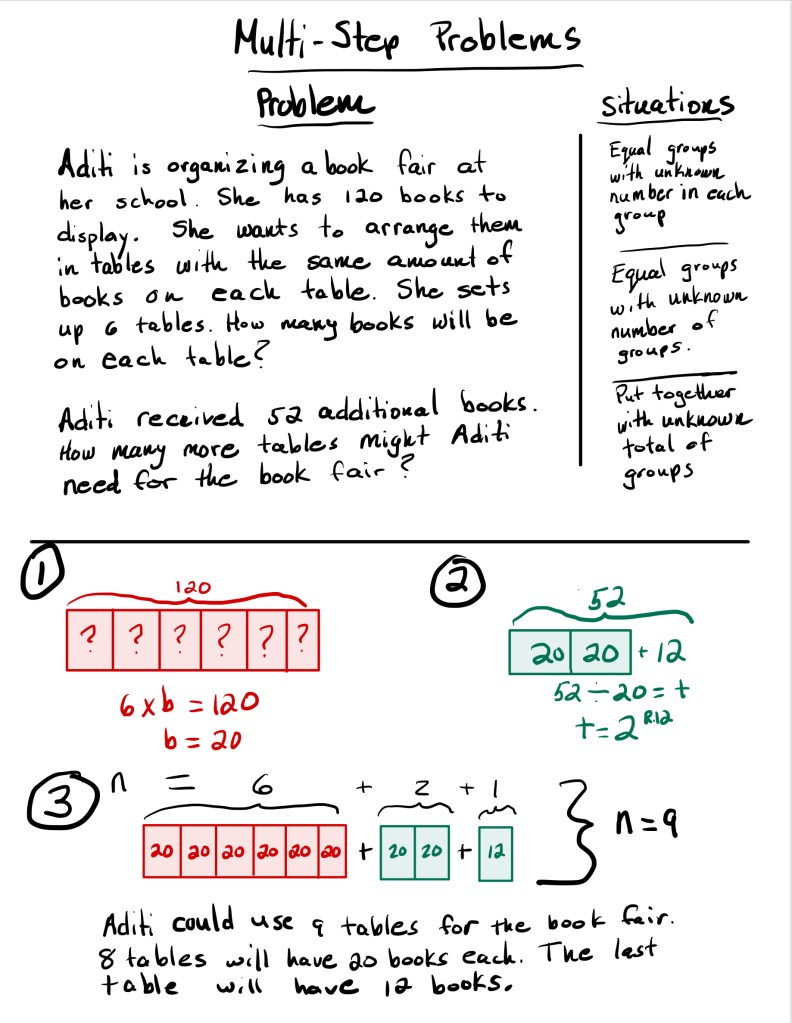 Multi-Step Problems
Problem
Aditi is organizing a book fair at
her school. She has 120 books to
display. She wants to arrange them
in tables with the same amount of
books on each table. She sets
up 6 tables. How many books will be
on each table?
Aditi received 52 additional books.
How many more tables might Aditi
need for the book fair?
Situations
Equal groups
with unknown
number in each
group
Equal groups
with unknown
number of
groups.
Put together
with unknown
total of
groups
1
120
? ? ? ? ? ?
6 x b = 120
b = 20
2
52
20 20 + 12
52 ÷ 20 = t
t = 2 R.12
3
n = 6 + 2 + 1
20 20 20 20 20 20 + 20 20 + 12
n = 9
Aditi could use 9 tables for the book fair.
8 tables will have 20 books each. The last
table will have 12 books.